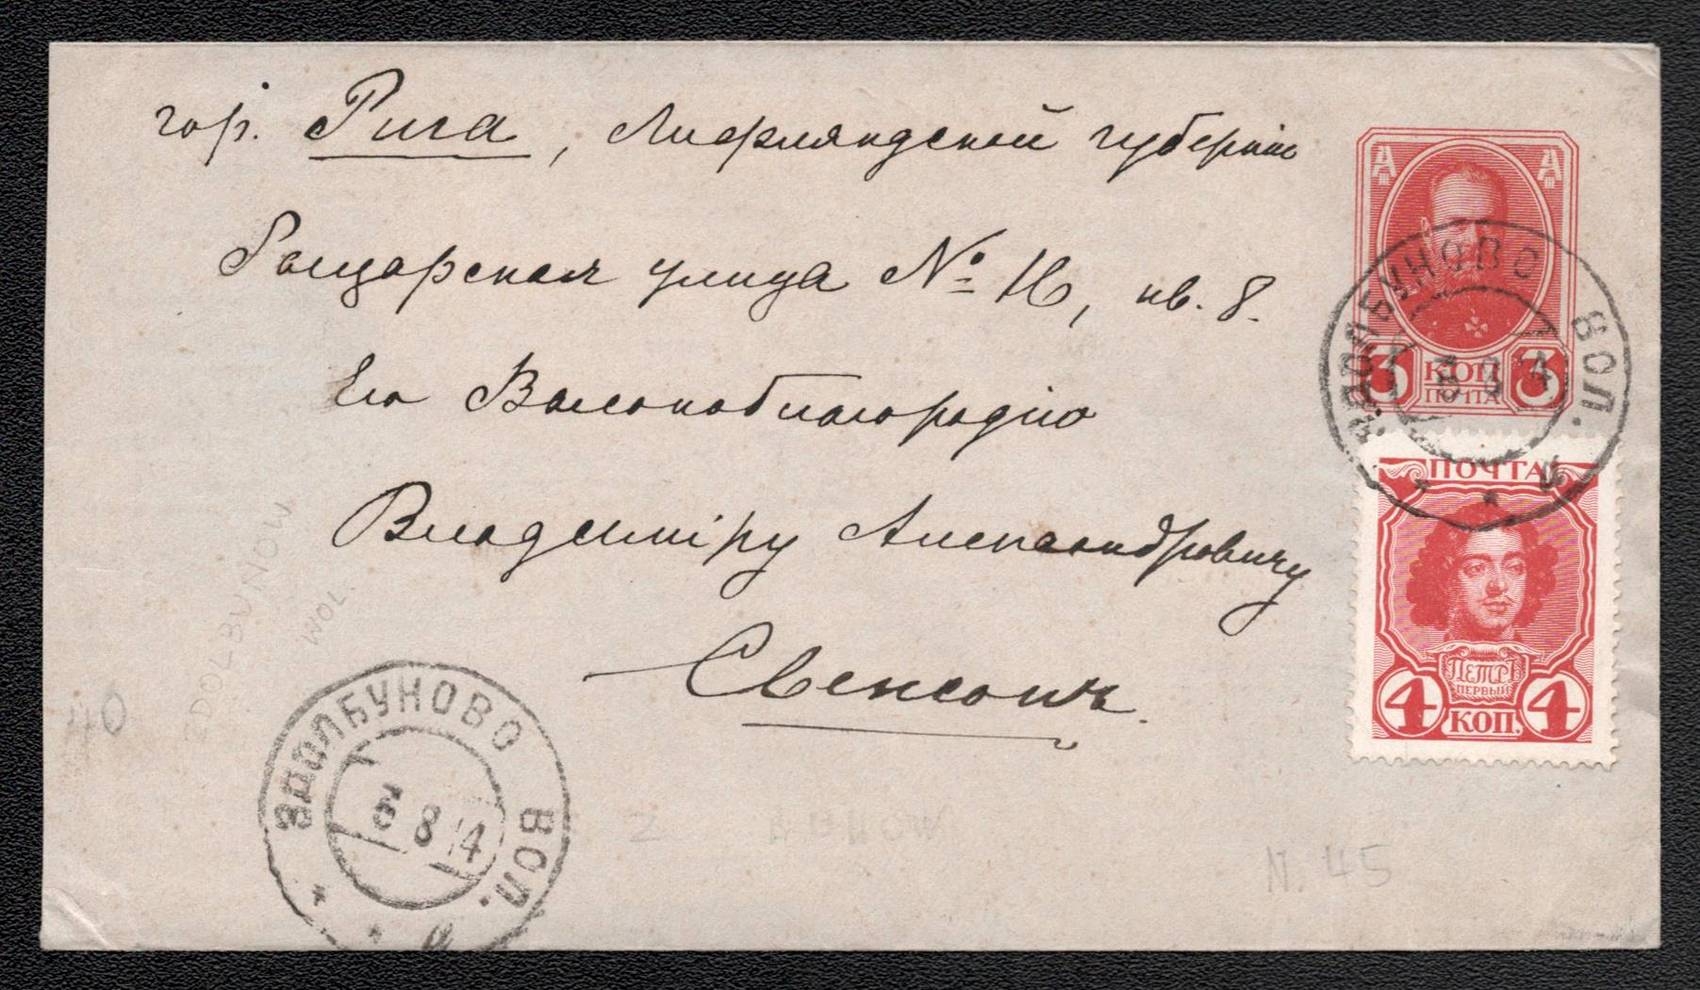 гор. Рига, Лифляндской губернии
Рыцарская улица № 16, кв. 8.
Его Высокоблагородію
Владиміру Александровичу
Свенсонъ.
3 КОП 3
ПОЧТА
ЗДОЛБУНОВО ВОЛ.
8 14
ПОЧТА
ПЕТРЪ
ПЕРВЫЙ
4 КОП. 4
ZDOLBUNOW
WOL.
40
ЗДОЛБУНОВО ВОЛ.
6 8 14
N. 45